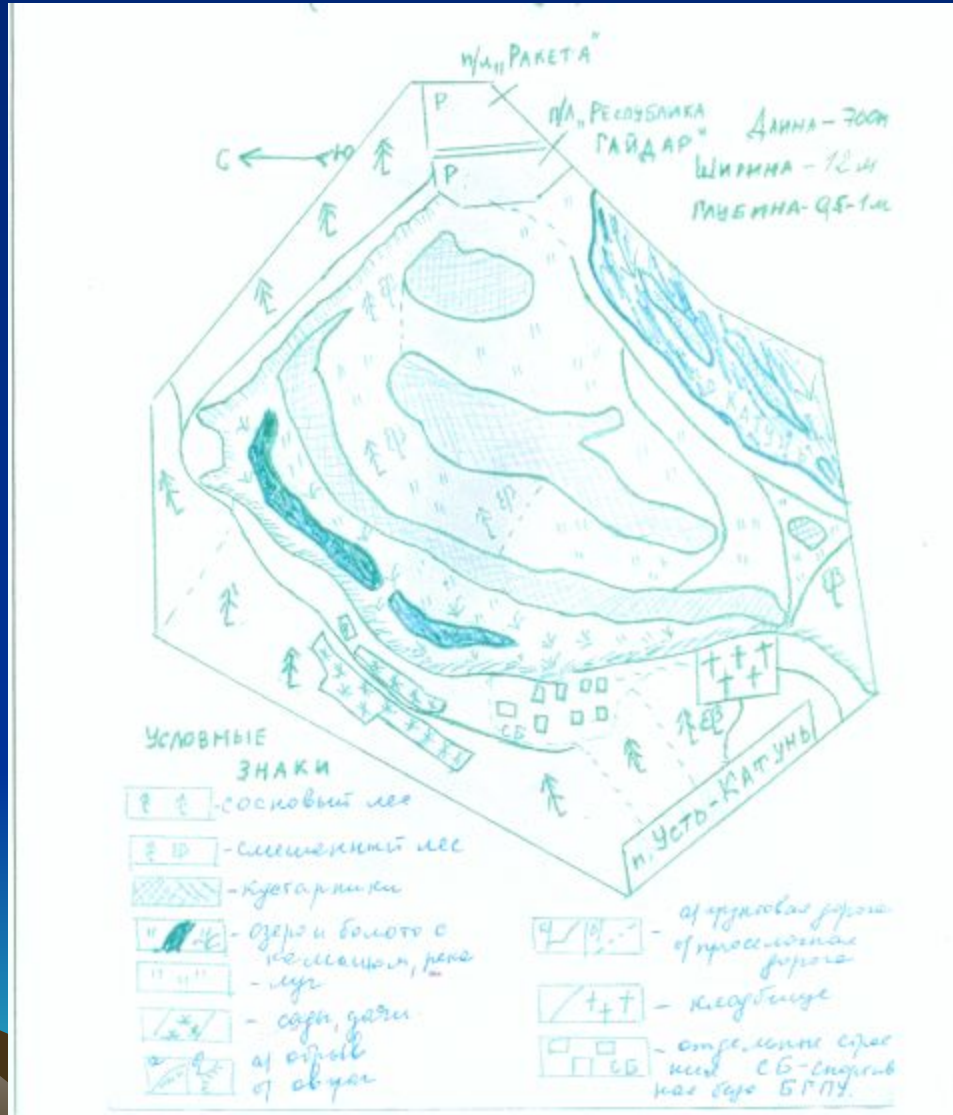 п/л „РАКЕТА"
п/л „РЕСПУБЛИКА
ГАЙДАР"
ДЛИНА – 700м
ШИРИНА – 12 м
ГЛУБИНА – 0,5-1м
С ← Ю
Р
Р
КАТУНЬ
СБ
п. УСТЬ-КАТУНЬ
УСЛОВНЫЕ
ЗНАКИ
- сосновый лес
- смешенный лес
- кустарники
- озеро и болото с
камышом, река
- луг
- сады, дачи
а) обрыв
б) овраг
а) грунтовая дорога
б) проселочная
дорога
- кладбище
- отдельные строе
ния СБ-спортив
ная база БГПУ.